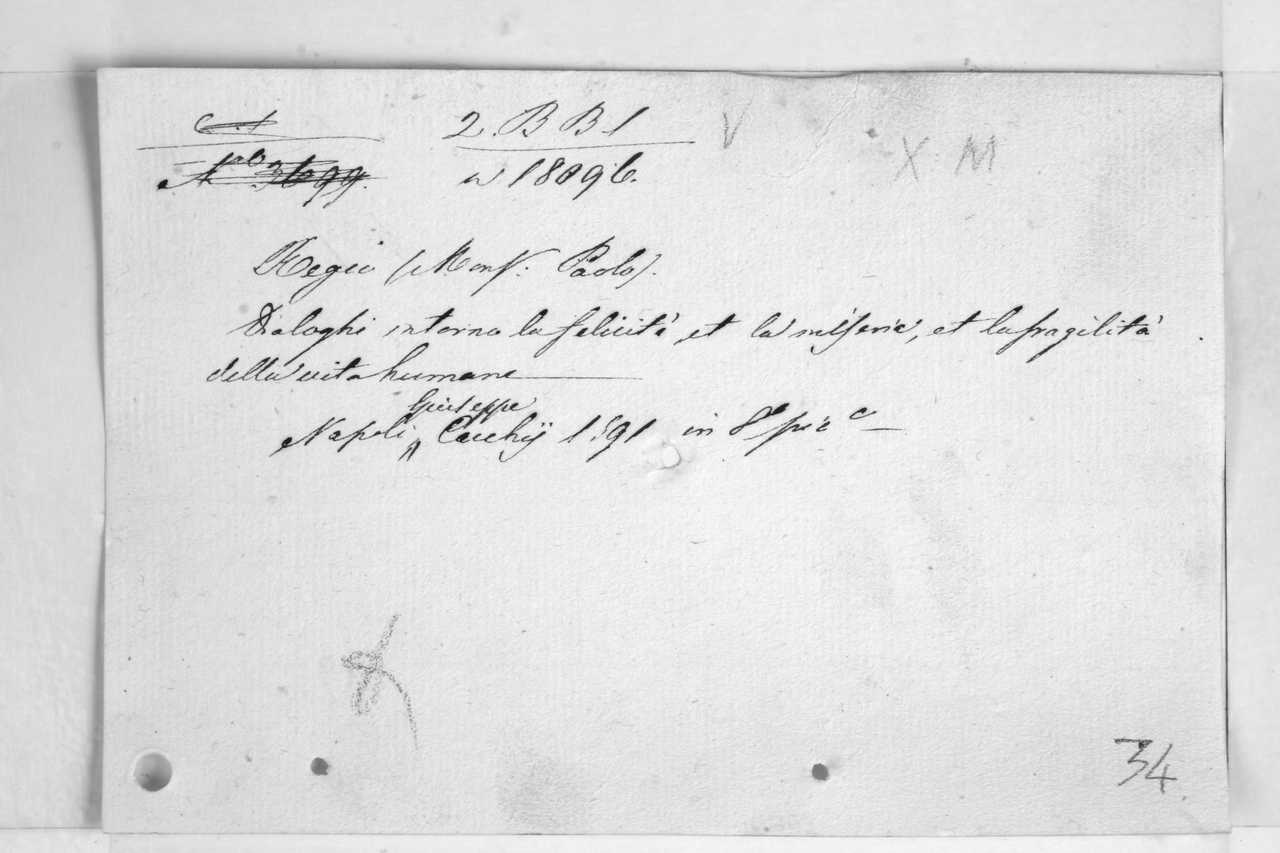 2. B B 1 V
X M
N.° 3699. n 18096.
Regio (Monſ: Paolo).
Dialoghi intorno la felicità, et la miſeria, et la fragilità
della vita humana
Giuseppe
Napoli, Cacchij 1591 in 8° pic°
34